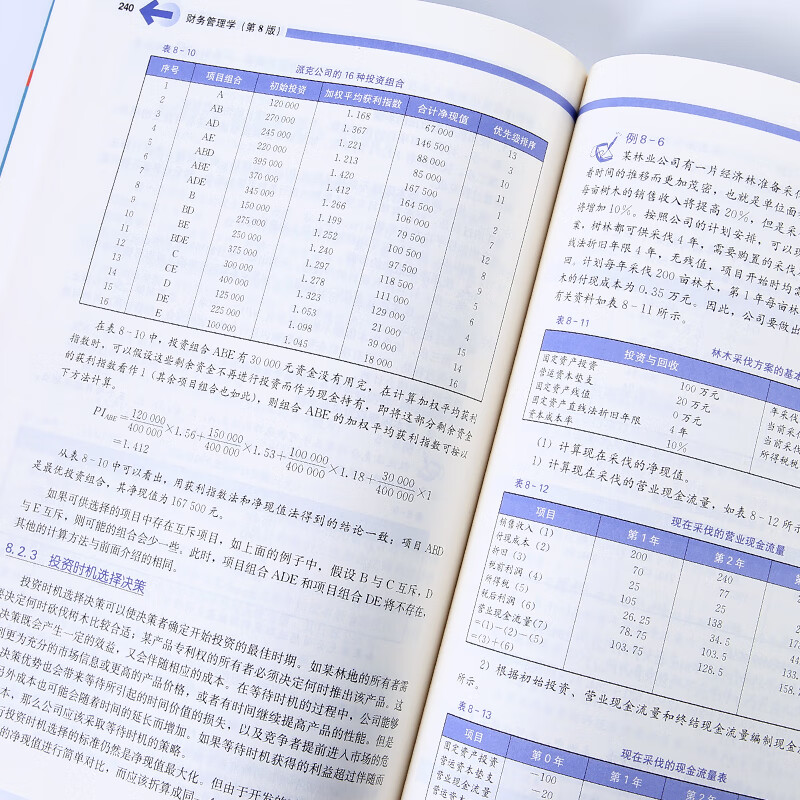 240
财务管理学（第8版）
表8-10
派克公司的16种投资组合
序号 项目组合 初始投资 加权平均获利指数 合计净现值 优先级排序
1 A 120 000 1.168 67 000 13
2 AB 270 000 1.367 146 500 3
3 AD 245 000 1.221 88 000 10
4 AE 220 000 1.213 85 000 11
5 ABD 395 000 1.420 167 500 1
6 ABE 370 000 1.412 164 500 2
7 ADE 345 000 1.266 106 000 7
8 B 150 000 1.199 79 500 12
9 BD 275 000 1.252 100 500 8
10 BE 250 000 1.240 97 500 9
11 BDE 375 000 1.297 118 500 5
12 C 300 000 1.278 111 000 6
13 CE 400 000 1.323 129 000 4
14 D 125 000 1.053 21 000 15
15 DE 225 000 1.098 39 000 14
16 E 100 000 1.045 18 000 16
在表8-10中，投资组合ABE有30 000元资金没有用完，在计算加权平均获利
指数时，可以假设这些剩余资金不再进行投资而作为现金持有，即将这部分剩余资金
的获利指数看作1（其余项目组合也如此），则组合ABE的加权平均获利指数可按以
下方法计算。
PI_ABE=120 000/400 000×1.56+150 000/400 000×1.53+100 000/400 000×1.18+30 000/400 000×1
=1.412
从表8-10中可以看出，用获利指数法和净现值法得到的结论一致：项目ABD
是最优投资组合，其净现值为167 500元。
如果可供选择的项目中存在互斥项目，如上面的例子中，假设B与C互斥，D
与E互斥，则可能的组合会少一些。此时，项目组合ADE和项目组合DE将不存在，
其他的计算方法与前面介绍的相同。
8.2.3 投资时机选择决策
投资时机选择决策可以使决策者确定开始投资的最佳时期。如某林地的所有者需
要决定何时砍伐树木比较合适；某产品专利权的所有者必须决定何时推出该产品。这
决策既会产生一定的效益，又会伴随相应的成本。在等待时机的过程中，公司能够
到更为充分的市场信息或更高的产品价格，或者有时间继续提高产品的性能。但是
决策优势也会带来等待所引起的时间价值的损失，以及竞争者提前进入市场的危
另外成本也可能会随着时间的延长而增加。如果等待时机获得的利益超过伴随而
本，那么公司应该采取等待时机的策略。
行投资时机选择的标准仍然是净现值最大化。但由于开发的
的净现值进行简单对比，而应该折算成同
例8-6
某林业公司有一片经济林准备采伐
着时间的推移而更加茂密，也就是单位面
每亩树木的销售收入将提高20%，但是采
将增加10%。按照公司的计划安排，可以现
案，树林都可供采伐4年，需要购置的采伐
线法折旧年限4年，无残值，项目开始时均需
回。计划每年采伐200亩林木，第1年每亩林
木的付现成本为0.35万元。因此，公司要做出
有关资料如表8-11所示。
表8-11
林木采伐方案的基本
投资与回收
固定资产投资 100万元 年采伐
营运资本垫支 20万元 当前采
固定资产残值 0万元 当前采伐
固定资产直线法折旧年限 4年 所得税税
资本成本率 10%
（1）计算现在采伐的净现值。
1）计算现在采伐的营业现金流量，如表8-12所示
表8-12
现在采伐的营业现金流量
项目 第1年 第2年
销售收入（1） 200 240
付现成本（2） 70 77
折旧（3） 25 25
税前利润（4） 105 138
所得税（5） 26.25 34.5
税后利润（6） 78.75 103.5
营业现金流量（7） 103.75 128.5
=(1)-(2)-(5)
=(3)+(6)
2）根据初始投资、营业现金流量和终结现金流量编制现金
所示。
表8-13
现在采伐的现金流量表
项目 第0年 第1年 第2年
固定资产投资 -100
营运资本垫支 -20
营业现金流量
营运资本